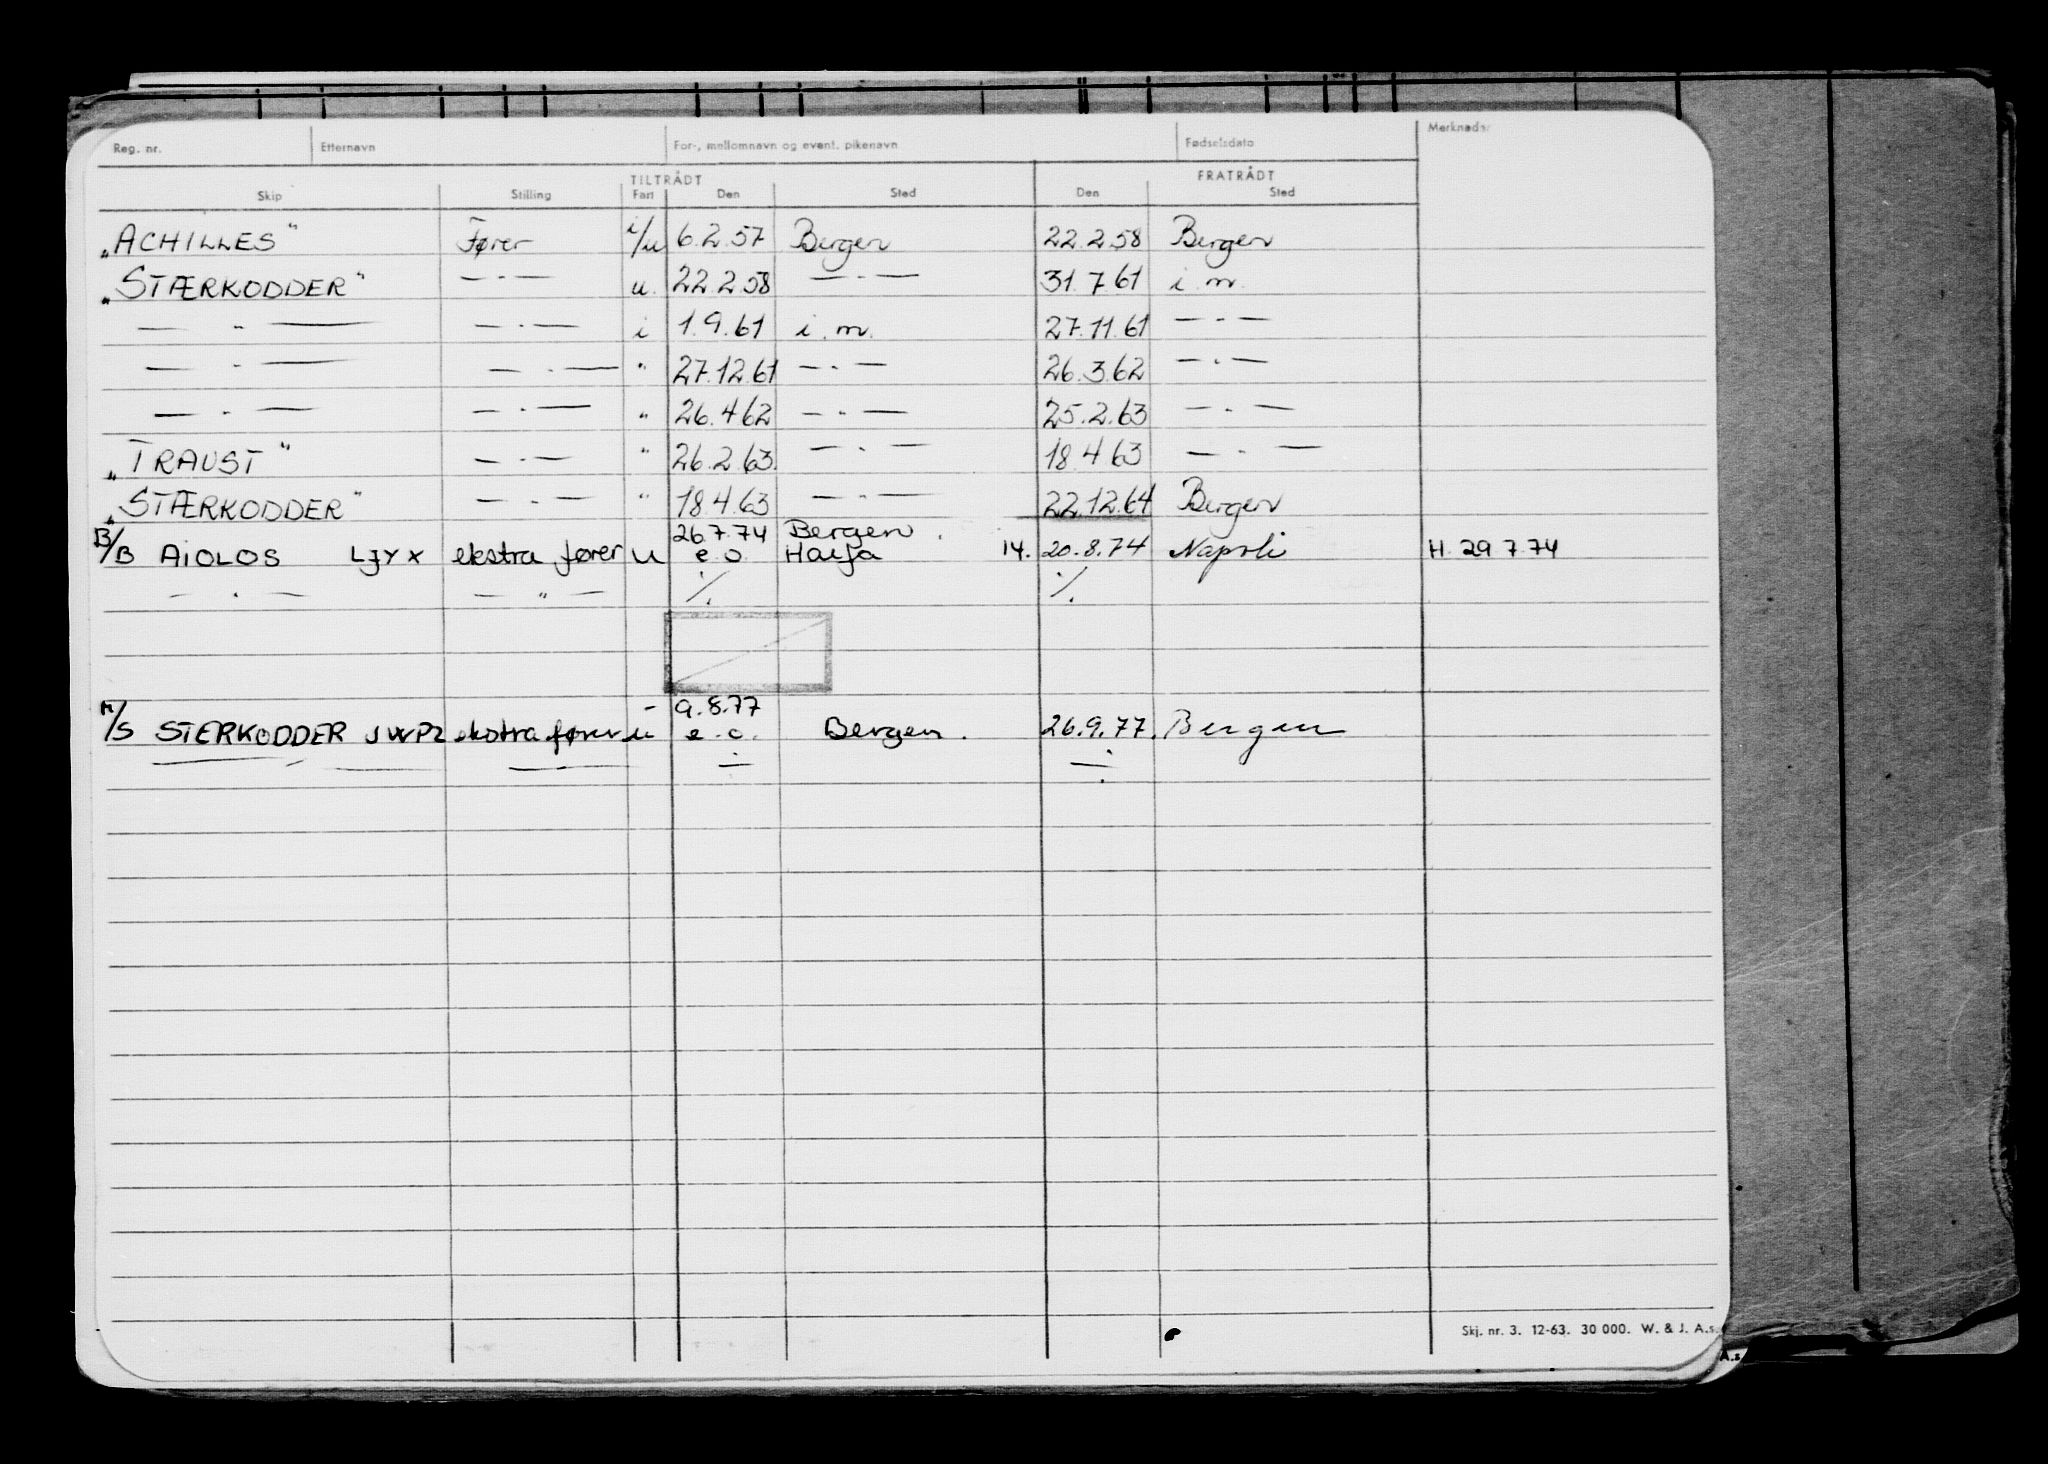 Reg. nr. Etternavn For-, mellomnavn og event. pikenavn Fødselsdato Merknader
TILTRÅDT FRATRÅDT
Skip Stilling Fart Den Sted Den Sted
"ACHILLES" Fører i/u 6.2.57 Bergen 22.2.58 Bergen
"STÆRKODDER" — · — u. 22.2.58 — · — 31.7.61 i.m.
— " — — · — i 1.9.61 i.m. 27.11.61 — · —
— " — — · — " 27.12.61 — · — 26.3.62 — · —
— " — — · — " 26.4.62 — · — 25.2.63 — · —
"TRAUST" — · — " 26.2.63. — · — 18.4.63 — · —
"STÆRKODDER" — · — " 18.4.63 — · — 22.12.64 Bergen
26.7.74 Bergen.
B/B AIOLOS LJYX ekstra fører u e.o. Haifa 14. 20.8.74 Napoli H. 29.7.74
— " — — " — ·/. ·/.
9.8.77
M/S STERKODDER JWPZ ekstra fører u e.o. Bergen. 26.9.77. Bergen
Skj. nr. 3. 12-63. 30 000. W. & J. A.s.
A.s